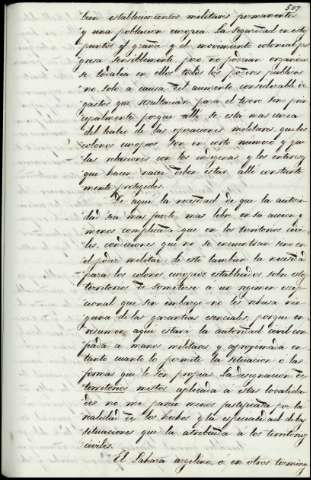 507
tran establecimientos militares permanentes
y una poblacion europea. La seguridad en estos
puntos es grande y el movimiento colonial pro
gresa sensiblemente, pero no podrian organizar
se todavia en ellos todos los poderes publicos
no solo a causa del aumento considerable de
gastos que resultarian para el tesoro sino prin
cipalmente porque alli se esta mas cerca
del teatro de las operaciones militares, que los
colonos europeos son en corto numero y que
las relaciones con los indigenas y los intereses
que hacen nacer deben estar alli constante
mente protegidos.
De aqui la necesidad de que la autori
dad sea mas fuerte, mas libre en su accion y
menos complicada que en los territorios civi
les, condiciones que no se encuentran sino en
el poder militar: de esto tambien la necesidad
para los colonos europeos establecidos sobre este
territorio de someterse a un regimen excep
cional que sin embargo no les rehusa nin
guna de las garantias esenciales, porque en
resumen aqui estará la autoridad civil con
fiada a manos militares y apropiada en
tanto cuanto lo permite la situacion a las
formas que le son propias. La designacion de
territorios mixtos aplicada a estas localida
des no me parece menos justificada por la
realidad de los hechos y la especialidad de las
situaciones que la atribuida a los territorios
civiles.
El Sahara argelino, o en otros terminos